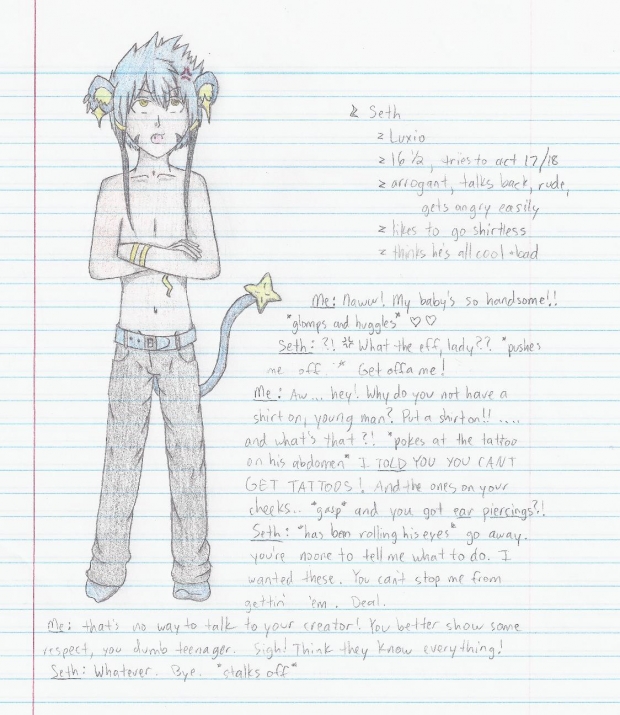 Seth
Luxio
16 ½, tries to act 17/18
arrogant, talks back, rude,
gets angry easily
likes to go shirtless
thinks he's all cool + bad
Me: Naww! My baby's so handsome!!
*glomps and huggles* ♡♡
Seth: ?! What the eff, lady?? *pushes
me off.* Get offa me!
Me: Aw... hey! Why do you not have a
shirt on, young man? Put a shirt on!! ....
and what's that?! *pokes at the tattoo
on his abdomen* I TOLD YOU YOU CANT
GET TATTOOS! And the ones on your
cheeks.. *gasp* and you got ear piercings?!
Seth: *has been rolling his eyes* go away.
you're noone to tell me what to do. I
wanted these. You can't stop me from
gettin' 'em. Deal.
Me: that's no way to talk to your creator! You better show some
respect, you dumb teenager. Sigh! Think they know everything!
Seth: Whatever. Bye. *stalks off*